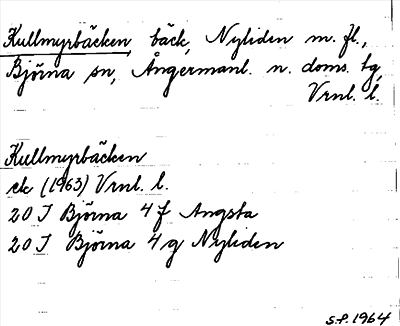 Kullmyrbäcken bäck, Nyliden m. fl.,
Björna sn, Ångermanl. n. doms. tg
Vrnl. l.
Kullmyrbäcken
ek (1963) Vrnl. l.
20 J Björna 4 f Angsta
20 J Björna 4 g Nyliden
S.P. 1964